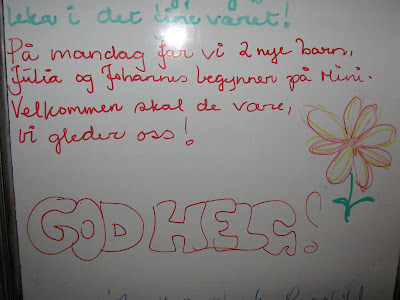 leka i det fine været!
På mandag får vi 2 nye barn,
Julia og Johannes begynner på Mini.
Velkommen skal de være,
vi gleder oss!
GOD HELG!